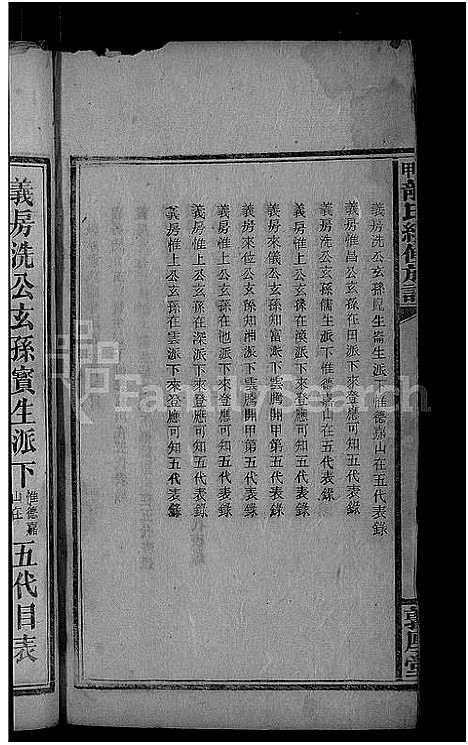 氏續修族譜
義房洗公玄孫崑生崙生派下惟德嘉山在五代表錄
義房惟昌公玄孫在田派下來登應可知五代表錄
義房洗公玄孫儒生派下惟德嘉山在五代表錄
義房惟上公玄孫在渙派下來登應可知五代表錄
義房來儀公玄孫知富派下雲騰開甲第五代表錄
義房來位公玄孫知湘派下雲騰開甲第五代表錄
義房惟上公玄孫在池派下來登應可知五代表錄
義房惟上公玄孫在深派下來登應可知五代表錄
義房惟上公玄孫在雲派下來登應可知五代表錄
義房洗公玄孫寳生派下惟德嘉山在五代目表
FamilySearch